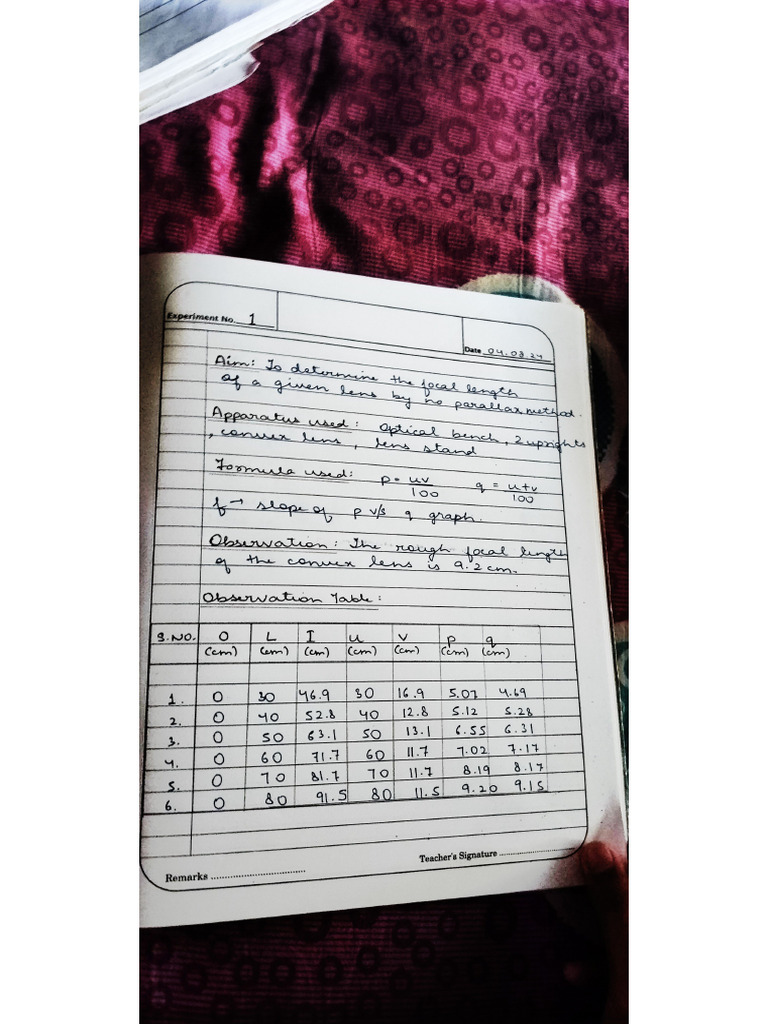 Experiment No. 1
Date 04.03.24
Aim: To determine the focal length
of a given lens by no parallax method.
Apparatus used: Optical bench, 2 uprights
, convex lens, lens stand
Formula used: p = uv/100 q = u+v/100
f → slope of p v/s q graph.
Observation: The rough focal length
of the convex lens is 9.2 cm.
Observation Table:
S.NO. O L I u v p q
(cm) (cm) (cm) (cm) (cm) (cm) (cm)
1. 0 30 46.9 30 16.9 5.07 4.69
2. 0 40 52.8 40 12.8 5.12 5.28
3. 0 50 63.1 50 13.1 6.55 6.31
4. 0 60 71.7 60 11.7 7.02 7.17
5. 0 70 81.7 70 11.7 8.19 8.17
6. 0 80 91.5 80 11.5 9.20 9.15
Teacher's Signature
Remarks